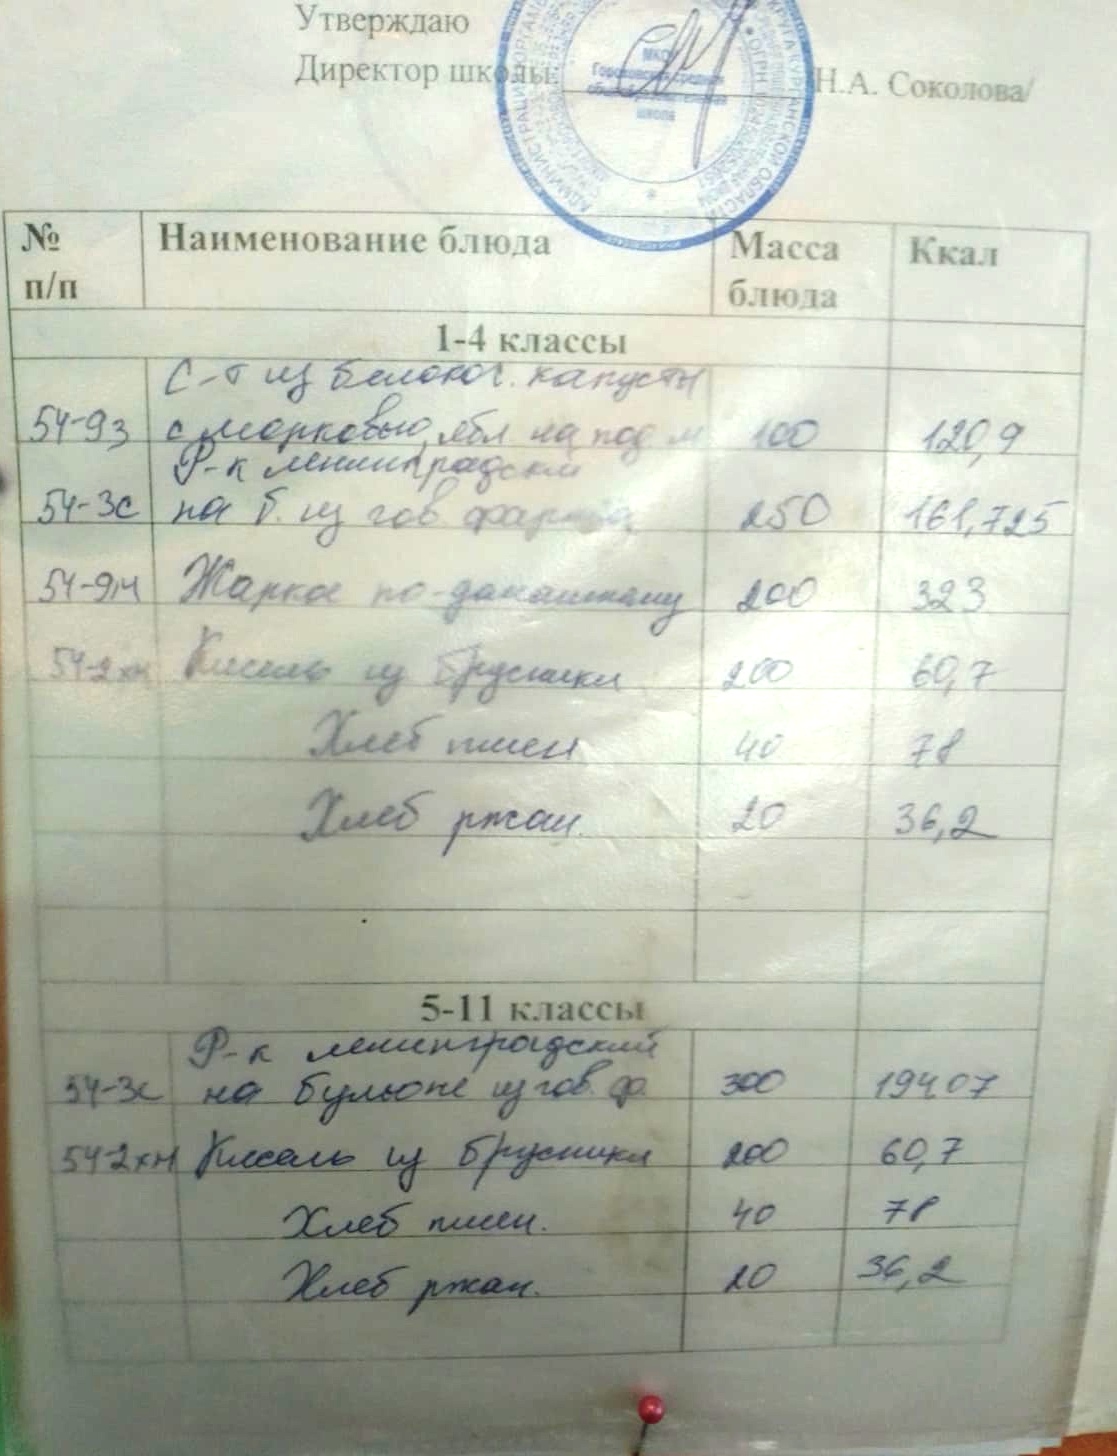 Утверждаю
Директор школы Н.А. Соколова/
№ п/п Наименование блюда Масса блюда Ккал
1-4 классы
С-т из белокоч. капусты
54-9з с морковью, ябл на под м 100 120,9
Р-к ленинградски
54-3с на б. из гов. фарша 250 161,725
54-9м Жаркое по-домашнему 200 323
54-2хн Кисель из брусники 200 60,7
Хлеб пшен 40 78
Хлеб ржан. 20 36,2
5-11 классы
Р-к ленинградский
54-3с на бульоне из гов. ф. 300 194,07
54-2хн Кисель из брусники 200 60,7
Хлеб пшен. 40 78
Хлеб ржан. 20 36,2